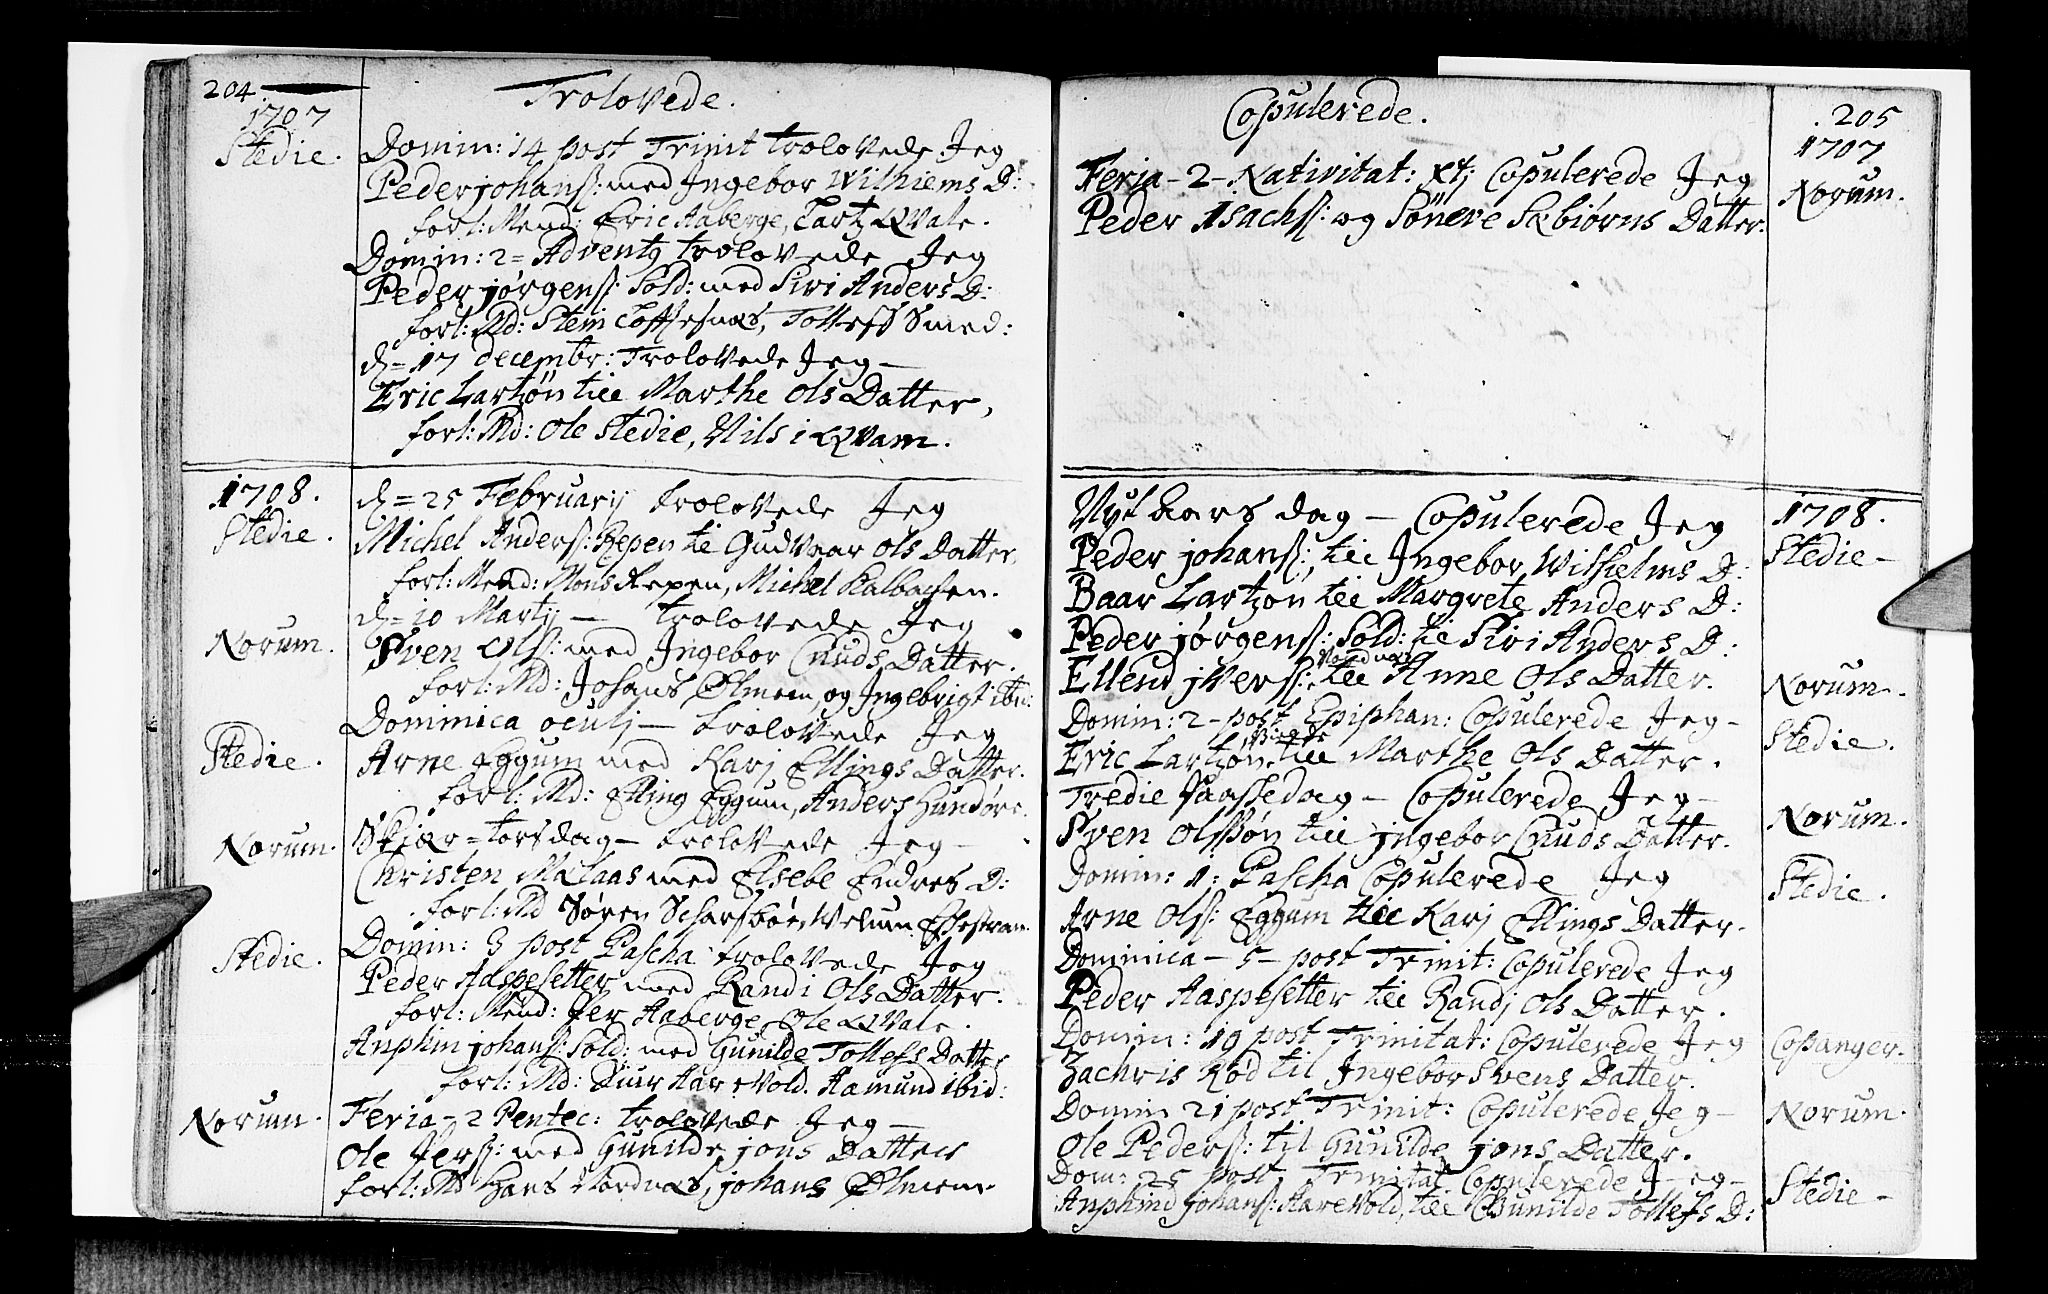 204
Trolovede.
1707
Stedie. Domin: 14 post Trinit trolovede Jeg
Peder johans: med Ingebor Wilhiems D:
forl: Mend: Eric Aaberge, Lartz Qvale.
Domin: 2 = Advent9 trolovede Jeg
Peder jørgens: Sold: med Siri Anders D:
forl: Md: Stein Loftesnæs, Tollefs Smed:
d= 17 decembr: Trolovede Jeg —
Eric Lartzøn till Marthe Ols Datter,
forl: Md: Ole Stedie, Nils i Qvam.
1708. d= 25 Februarij trolovede Jeg
Stedie. Michel Anders: Repen til Gudvaar Ols Datter,
forl: Mend: Mons Repen, Michel Kalbachen.
d= 10 Martij — trolovede Jeg
Norum. Sven Ols: med Ingebor Cnuds Datter.
forl: Md: Johans Ølmem, og Ingebrigt ibid:
Dominica oculj — trolovede Jeg
Stedie. Arne Eggum med Karj Ellings Datter.
forl: Md: Elling Eggum, Anders Hundøre.
Norum. Skiær = torsdag — trolovede Jeg —
Christen Malaas med Elsebe Endres D:
forl: Md Søren Scharsboe, Velum
Domin: 3 post Pascha trolovede Jeg
Stedie. Peder Aaspesetter med Randi Ols Datter.
forl: Mend: Per Aaberge, Ole Qvale.
Anphin johans: Sold: med Gunilde Tollefs Datter
forl: Md: Siur Aarevold. Aamund ibid:
Norum. Feria — 2 Pentec: trolovede Jeg —
Ole Pers: med Gunilde jons Datter
forl: Md Hans Nordnæs, johans Ølmem.
Copulerede.
205
1707
Feria — 2 — Nativitat: xt; Copulerede Jeg Norum.
Peder Isachs: og Söneve Esbiørns Datter.
Nyt Aars dag — Copulerede Jeg 1708.
Peder johans: till Ingebor Wilhelms D: Stedie —
Baar Lartzon till Margrete Anders D:
Peder jørgens: Sold: til Siri Anders D:
Nordnæs
Ellend jvers: till Anne Ols Datter. Norum.
Domin: 2 — post Epiphan: Copulerede Jeg —
Eric Lartzøn till Marthe Ols Datter. Stedie.
Tredie Paaskedag — Copulerede Jeg —
Sven Olssøn till jngebor Cnuds Datter. Norum.
Domin: 1: Pascha Copulerede Jeg
Arne Ols: Eggum till Karj Ellings Datter. Stedie.
Dominica — 5 — post Trinit: Copulerede Jeg
Peder Aaspesetter till Randj Ols Datter.
Domin: 19 post Trinitat: Copulerede Jeg
Zachris Rød til Ingebor Svens Datter. Copanger.
Domin 21 post Trinit: Copulerede Jeg —
Ole Peders: til Gunilde jons Datter. Norum.
Dom: 25 post Trinitat Copulerede Jeg —
Anphind johans: Aarevold, till Gunilde Tollefs D: Stedie —